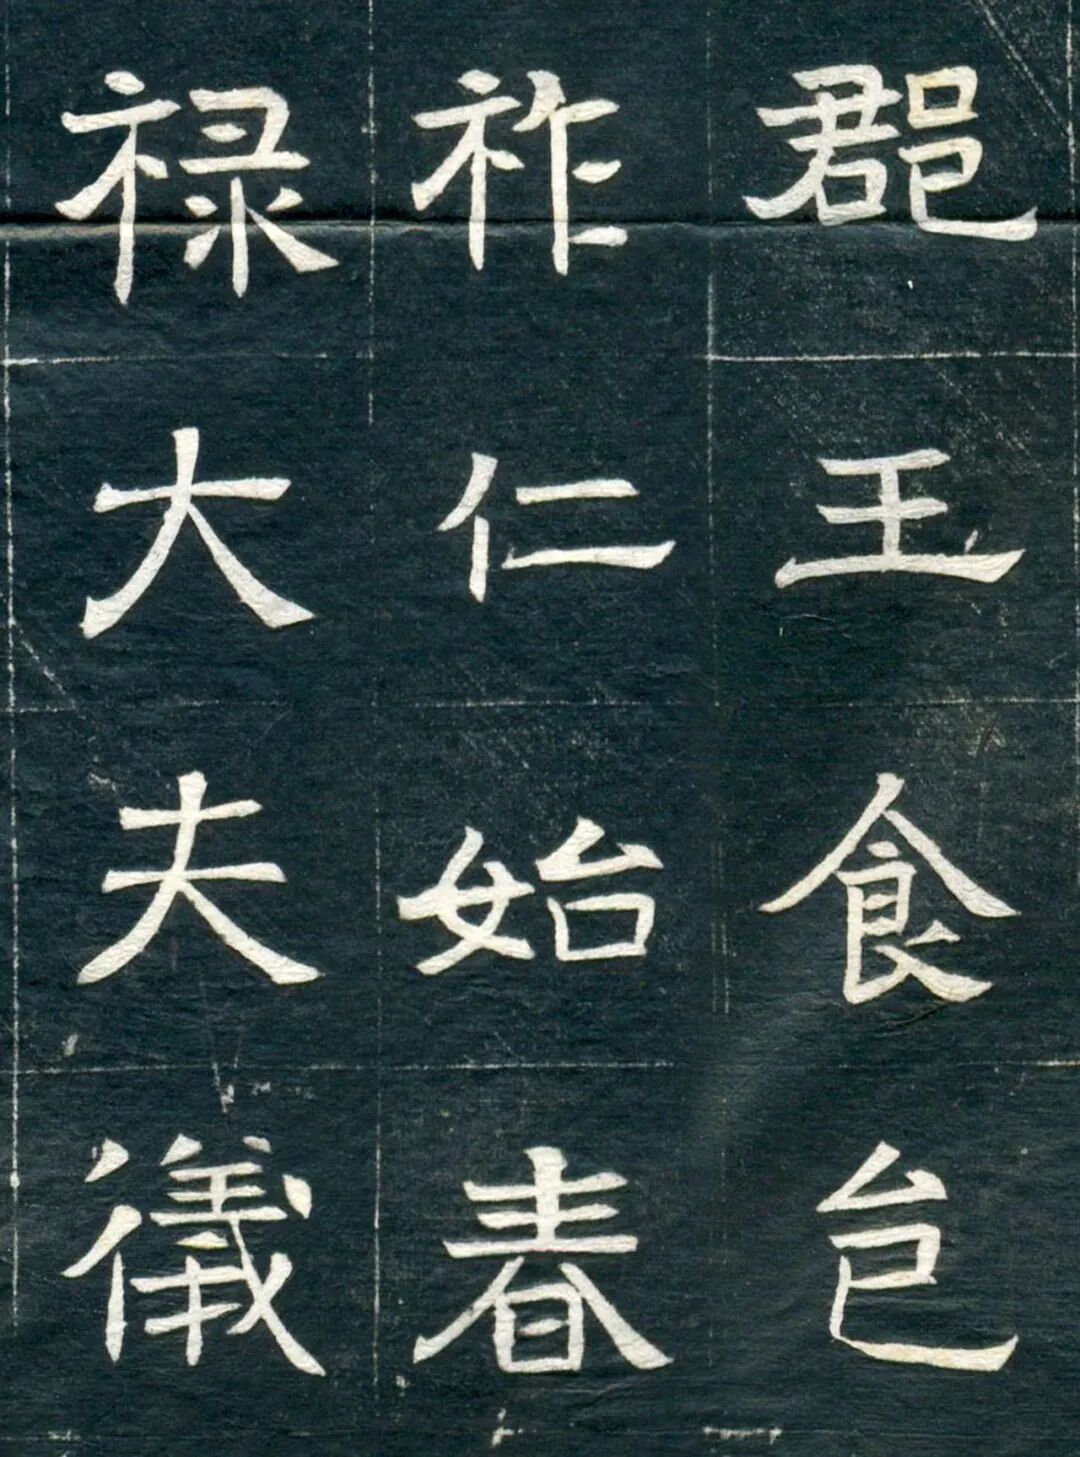 郡王食邑
祚仁始春
禄大夫儀